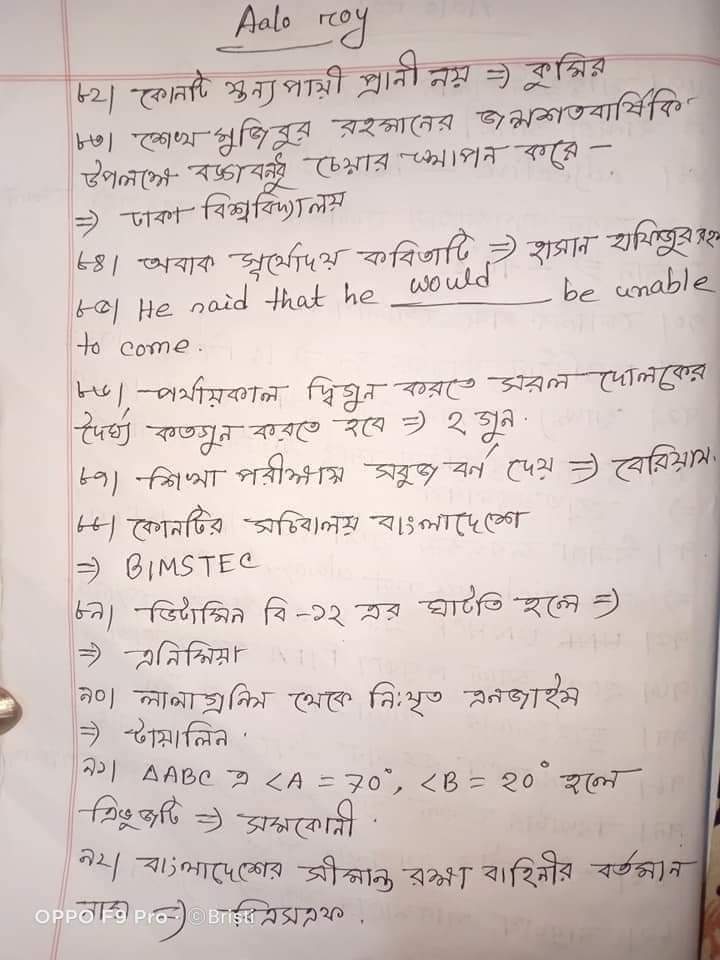 Aalo roy
৮২| কোনটি স্তন্যপায়ী প্রানী নয় ⇒ কুমির
৮৩| শেখ মুজিবুর রহমানের জন্মশতবার্ষিকি
উপলক্ষে বঙ্গবন্ধু চেয়ার স্থাপন করে –
⇒ ঢাকা বিশ্ববিদ্যালয়
৮৪| অবাক সূর্যোদয় কবিতাটি ⇒ হাসান হাফিজুর রহ
৮৫| He said that he would be unable
to come.
৮৬| পর্যায়কাল দ্বিগুন করতে সরল দোলকের
দৈর্ঘ্য কতগুন করতে হবে ⇒ ২ গুন.
৮৭| শিখা পরীক্ষায় সবুজ বর্ন দেয় ⇒ বেরিয়াম.
৮৮| কোনটির সচিবালয় বাংলাদেশে
⇒ BIMSTEC
৮৯| ভিটামিন বি -১২ এর ঘাটতি হলে ⇒
⇒ এনিমিয়া
৯০| লালাগ্রন্থি থেকে নিঃসৃত এনজাইম
⇒ টায়ালিন.
৯১| ΔABC এ <A = 70°, <B = 20° হলে
ত্রিভুজটি ⇒ সমকোনী.
৯২| বাংলাদেশের সীমান্ত রক্ষা বাহিনীর বর্তমান
নাম ⇒
OPPO F9 Pro · ©Bristi